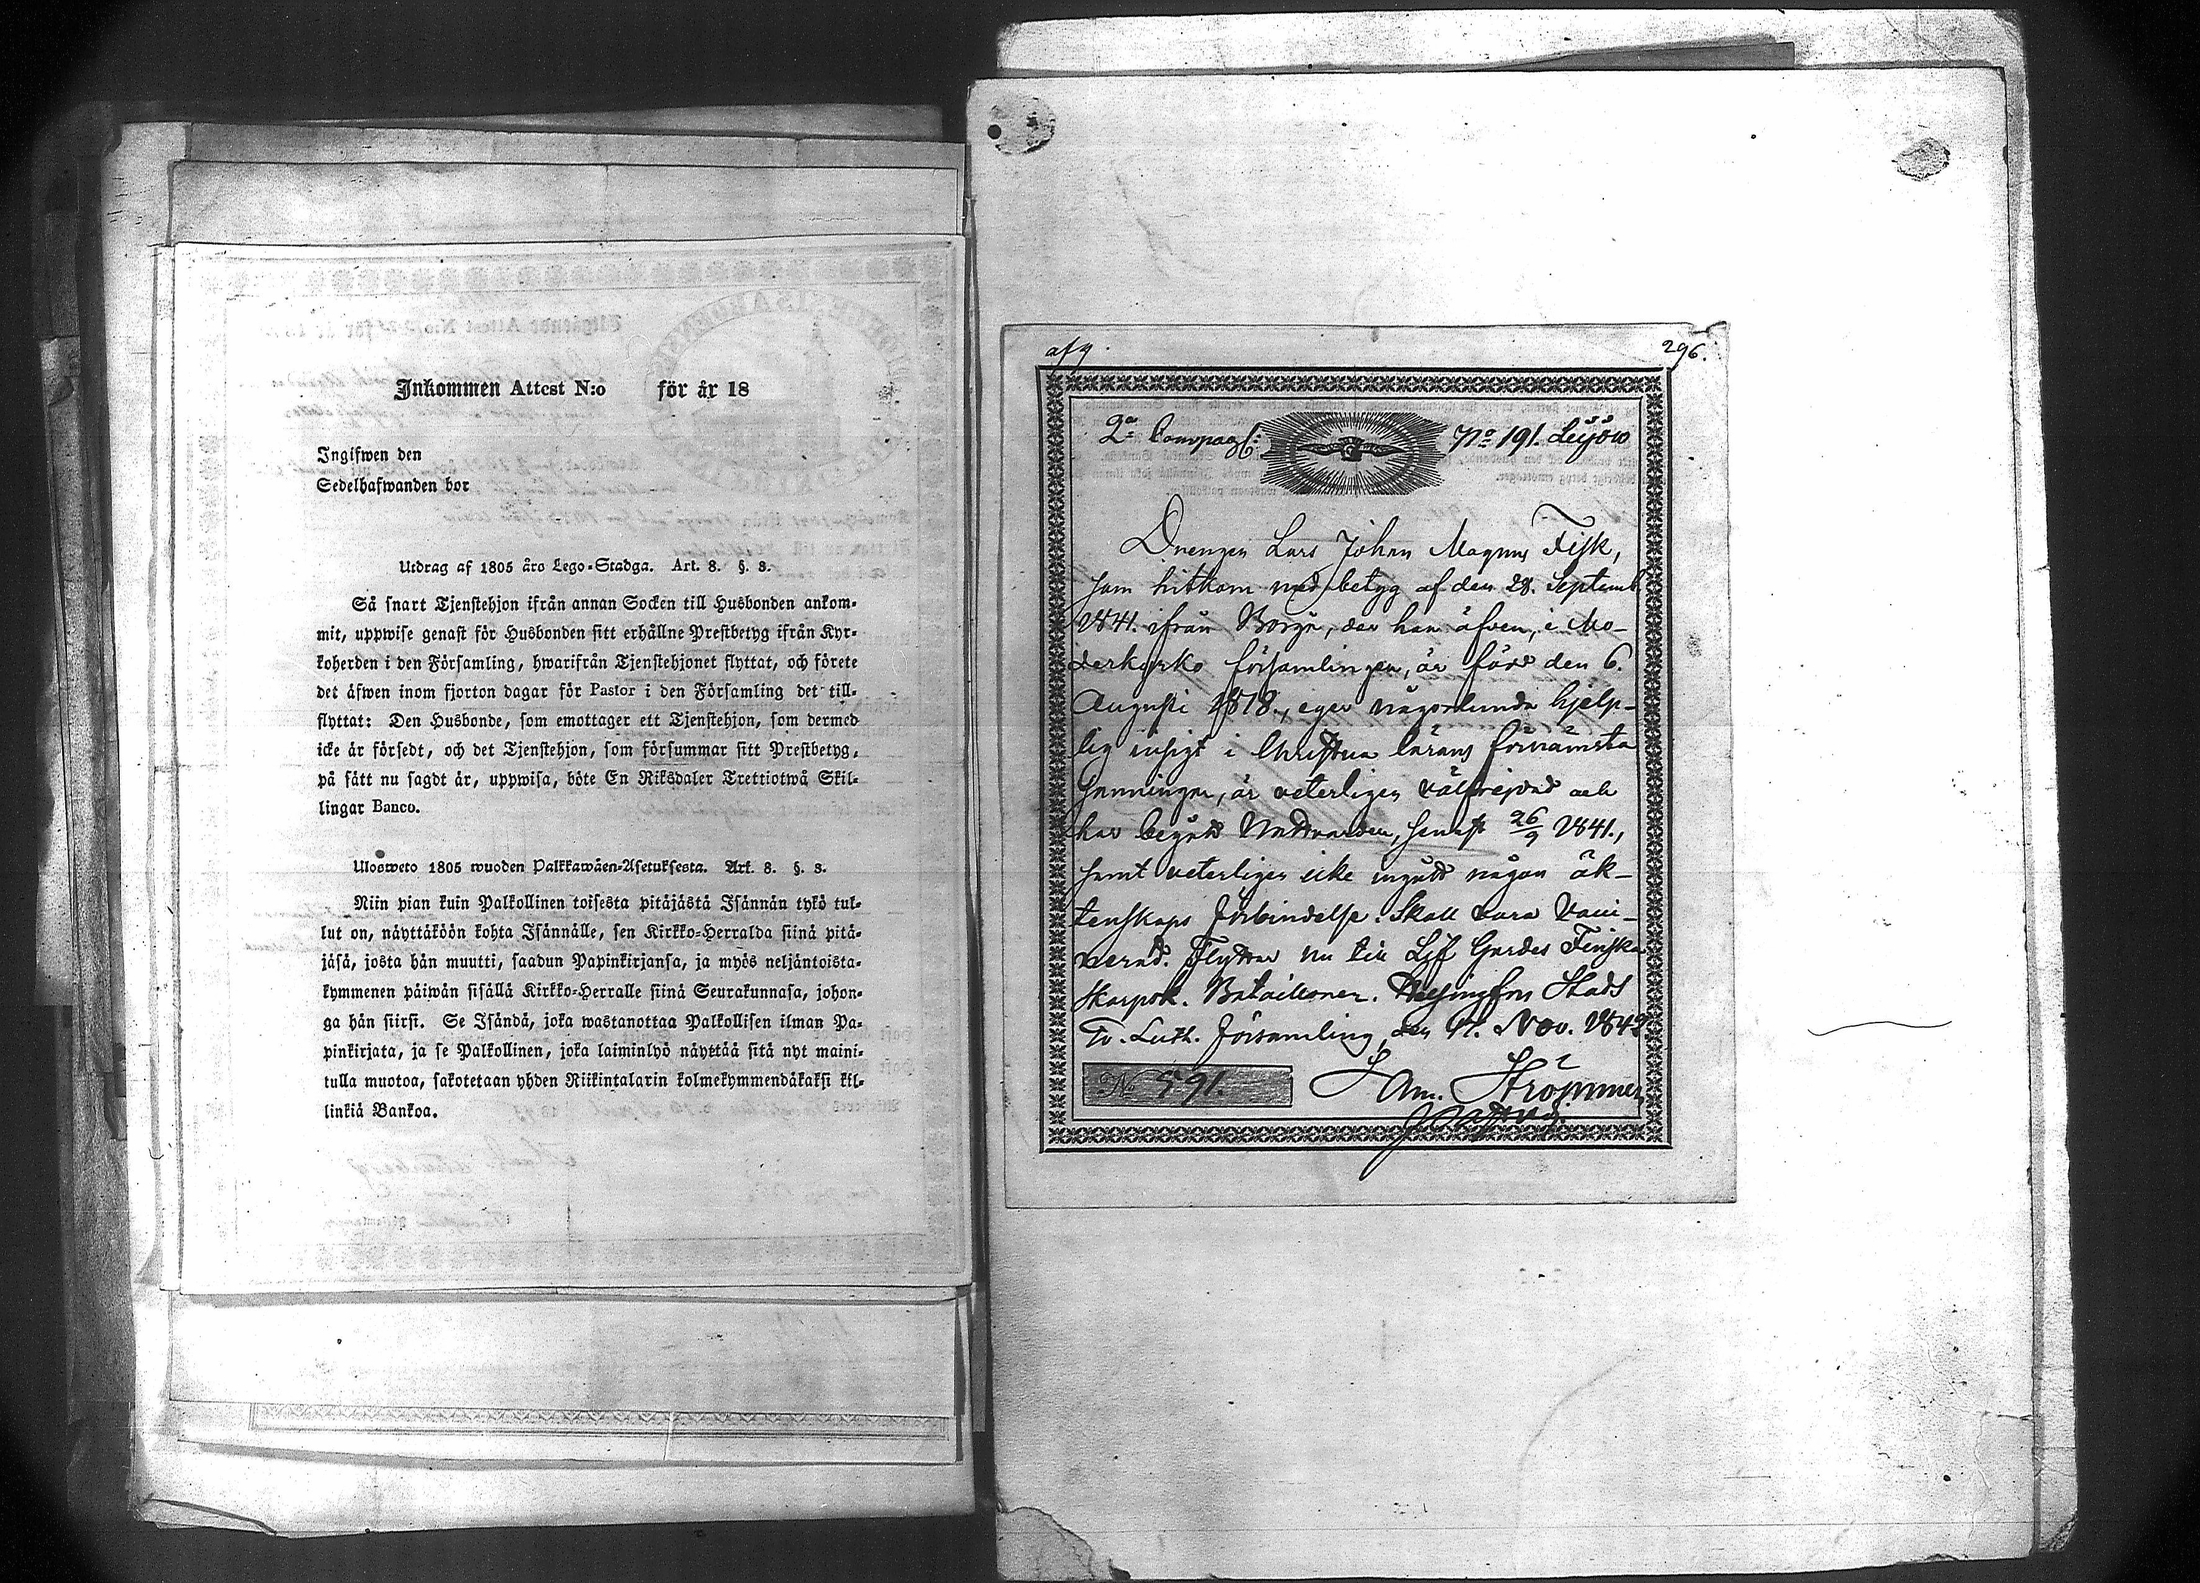 Inkommen Attest N:o för år 18
Ingifwen den
Sedelhafwanden bor
Utdrag af 1805 års Lego-Stadga. Art. 8. §. 3.
Så snart Tjenstehjon ifrån annan Socken till Husbonden ankom-
mit, uppwise genast för Husbonden sitt erhållne Prestbetyg ifrån Kyr-
koherden i den Församling, hwarifrån Tjenstehjonet flyttat, och förete
det äfwen inom fjorton dagar för Pastor i den Församling det till-
flyttat: Den Husbonde, som emottager ett Tjenstehjon, som dermed
icke är försedt, och det Tjenstehjon, som försummar sitt Prestbetyg,
på sätt nu sagdt är, uppwisa, böte En Riksdaler Trettiotwå Skil-
lingar Banco.
Ulosweto 1805 wuoden Palkkawäen-Asetuksesta. Art. 8. §. 3.
Niin pian kuin Palkollinen toisesta pitäjästä Isännän tykö tul-
lut on, näyttäköön kohta Isännälle, sen Kirkko-Herralda siinä pitä-
jäsä, josta hän muutti, saadun Papinkirjansa, ja myös neljäntoista-
kymmenen päiwän sisällä Kirkko-Herralle siinä Seurakunnasa, johon-
ga hän siirsi. Se Isändä, joka wastanottaa Palkollisen ilman Pa-
pinkirjata, ja se Palkollinen, joka laiminlyö näyttää sitä nyt maini-
tulla muotoa, sakotetaan yhden Riikintalarin kolmekymmendäkaksi kil-
linkiä Bankoa.
afg. 296.
2a Compag: No 191. Lejon
Drengen Lars Johan Magnus Fisk,
som hitkom med betyg af den 28. Septemb.
1841. ifrån Borgå, der han äfven, i Mo-
derkyrko församlingen, är född den 6.
Augusti 1818., eger någorlunda hjelp-
lig insigt i Christna lärans förnämsta
sanningar, är veterligen välfrejdad och
har begått Nattvarden, senast 26/9 1841.,
samt veterligen icke ingått någon äk-
tenskaps förbindelse. Skall vara Vacci-
nerad. Flyttar nu till Lif Gardes Finska
Skarpsk. Bataillonen. Helsingfors Stads
Ev. Luth. församling, den 17. Nov. 1842
No 591. Am. Strömmer